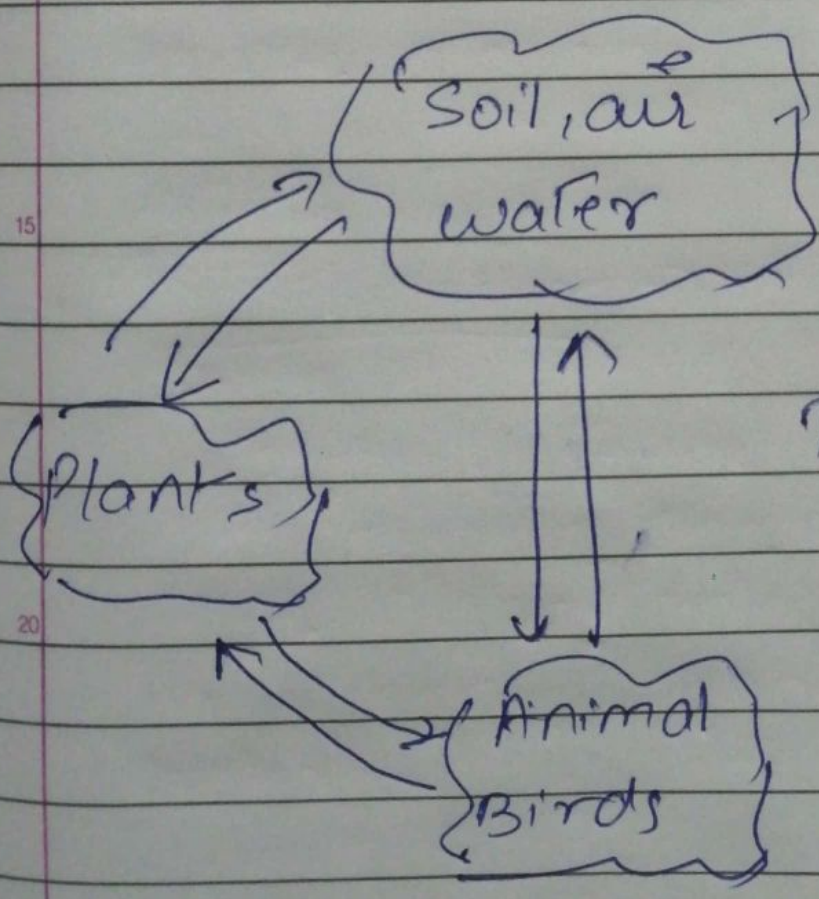 Soil, air
water
15
Plants
20
Animal
Birds